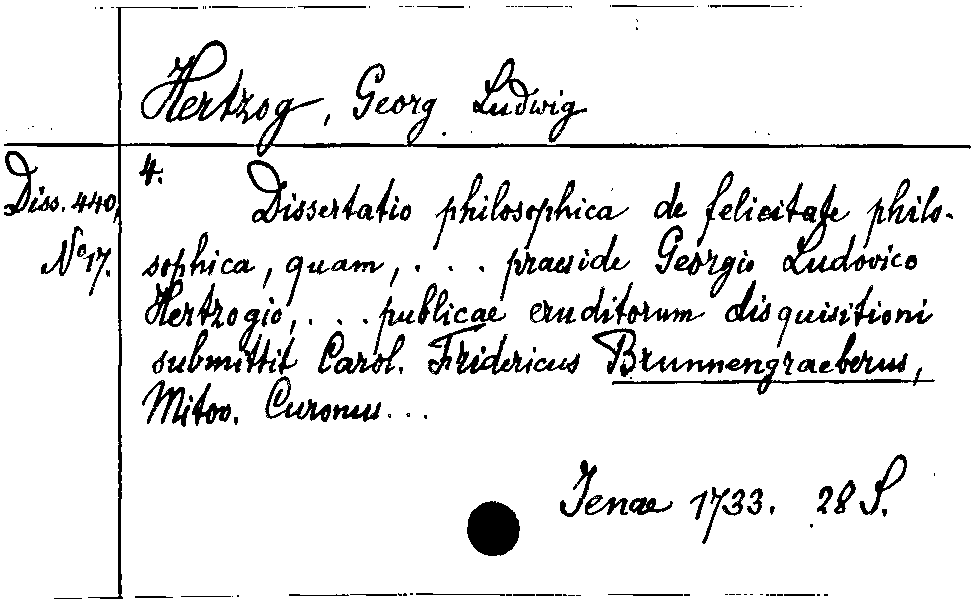 Hertzog, Georg Ludwig
Diss. 440,
No 17.
4.
Dissertatio philosophica de felicitate philo-
sophica, quam, . . . praeside Georgio Ludovico
Hertzogio, . . . publicae eruditorum disquisitioni
submittit Carol. Fridericus Brunnengraeberus,
Mitov. Curonus...
Jenae 1733. 28 S.